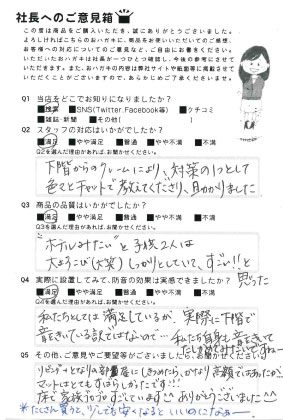 社長へのご意見箱
この度は商品をご購入いただき、誠にありがとうございます。
よろしければこちらのおハガキに、商品をお使いいただいてのご感想、
お客様への対応についてのご意見など、ご自由にお書きください。
いただいたおハガキは社長が一つひとつ確認し、今後の参考にさせて
いただきます。またおハガキの内容は弊社サイトや紙面等に掲載させて
いただくことがございますので、あらかじめご了承くださいませ。
Q1 当店をどこでお知りになりましたか?
■検索 ■SNS(Twitter、Facebook等) ■クチコミ
■雑誌・新聞 ■その他( )
Q2 スタッフの対応はいかがでしたか?
■満足 ■やや満足 ■普通 ■やや不満 ■不満
Q2を選んだ理由があれば、お聞かせください。
下階からのクレームにより、対策の1つとして
色々とチャットで教えてくださり、助かりました
Q3 商品の品質はいかがでしたか?
■満足 ■やや満足 ■普通 ■やや不満 ■不満
Q3を選んだ理由があれば、お聞かせください。
"ホテルみたい"と子供2人は
大よろこび(大笑)しっかりとしていて、すごい!!と
思った
Q4 実際に設置してみて、防音の効果は実感できましたか?
■満足 ■やや満足 ■普通 ■やや不満 ■不満
Q4を選んだ理由があれば、お聞かせください。
私たちとしては満足しているが、実際に下階で
音をきいている訳ではないので… 私たち自身も音をきいて
Q5 その他、ご意見やご要望等がございましたらお聞かせください。
リビング+となりの部屋に しきつめたら、かなり高額ではあったが、
マットはとてもすばらしかったです!!
ありがとうございました
*たくさん買うと、少しでも安くなると いいのになぁ…